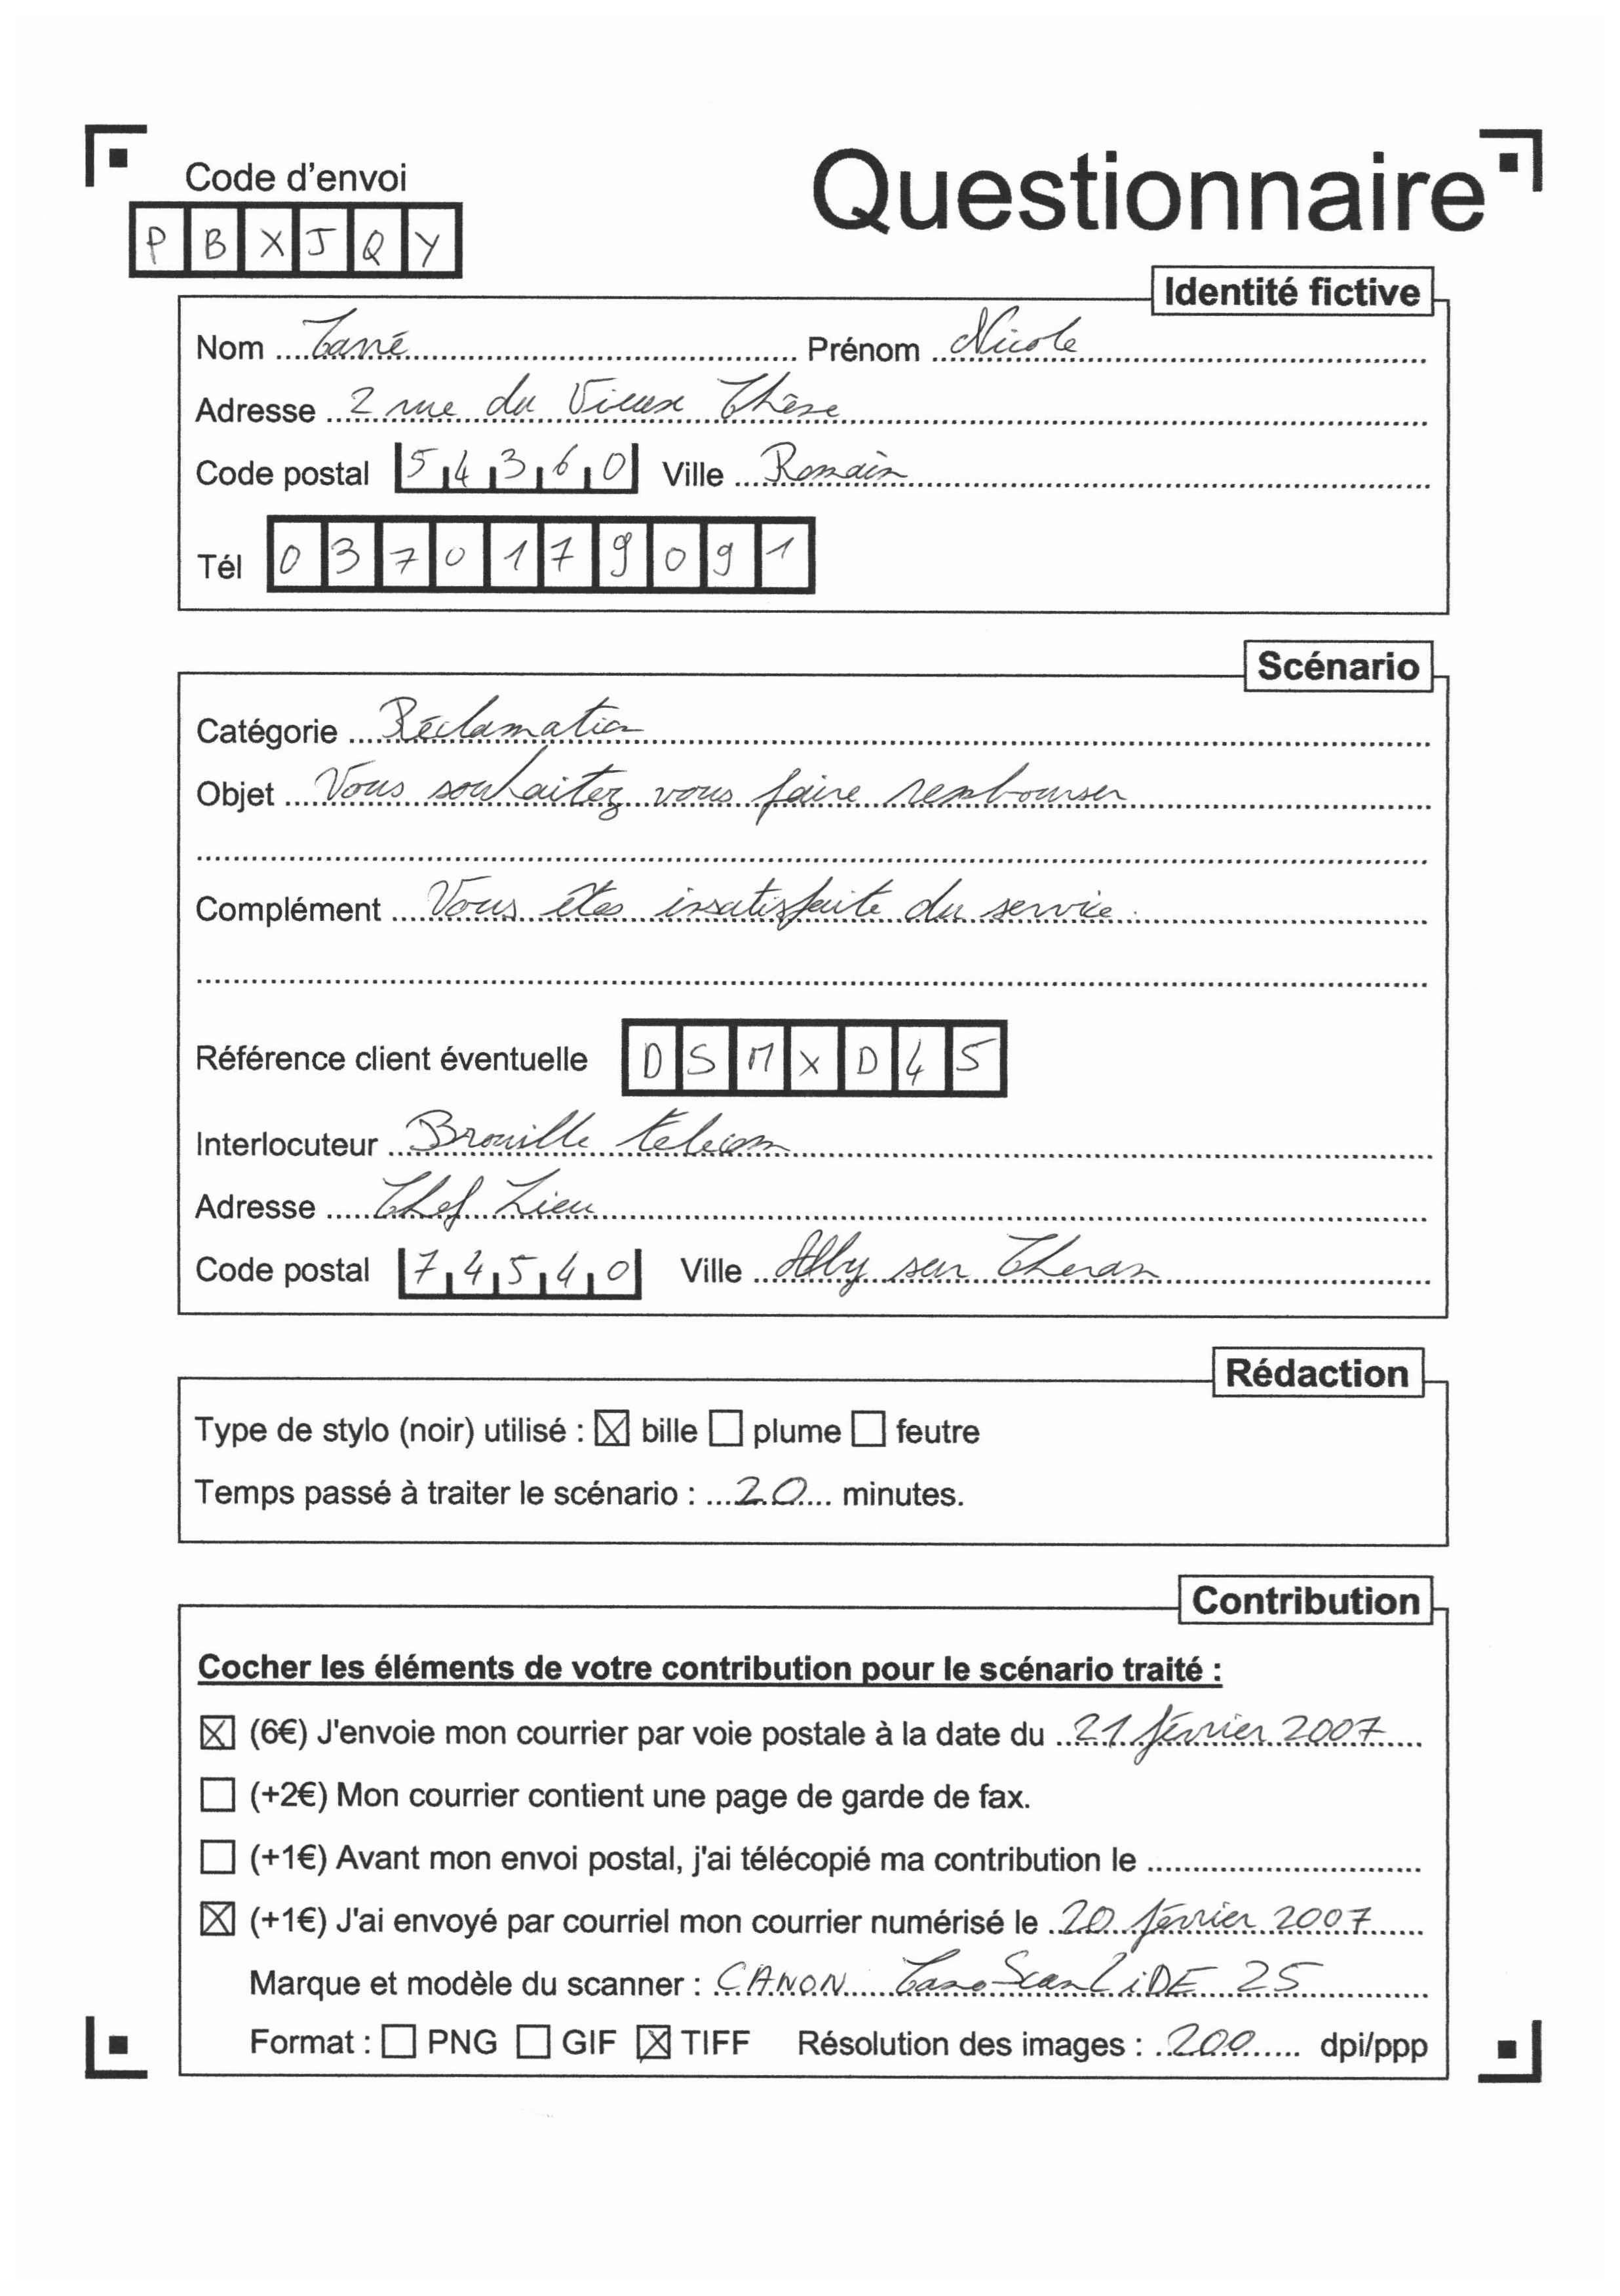 Code d'envoi
Questionnaire
P B X J Q Y
Identité fictive
Nom Carré Prénom Nicole
Adresse 2 rue du Vieux Chêne
Code postal 54360 Ville Romain
Tél 0370179091
Scénario
Catégorie Réclamation
Objet Vous souhaitez vous faire rembourser
Complément Vous êtes insatisfaite du service.
Référence client éventuelle DSMXD45
Interlocuteur Brouille telecom
Adresse Chef Lieu
Code postal 74540 Ville Alby sur Cheran
Rédaction
Type de stylo (noir) utilisé : ☒ bille ☐ plume ☐ feutre
Temps passé à traiter le scénario : 20 minutes.
Contribution
Cocher les éléments de votre contribution pour le scénario traité :
☒ (6€) J'envoie mon courrier par voie postale à la date du 21 février 2007
☐ (+2€) Mon courrier contient une page de garde de fax.
☐ (+1€) Avant mon envoi postal, j'ai télécopié ma contribution le
☒ (+1€) J'ai envoyé par courriel mon courrier numérisé le 20 février 2007
Marque et modèle du scanner : CANON CanoScan LiDE 25
Format : ☐ PNG ☐ GIF ☒ TIFF Résolution des images : 200 dpi/ppp